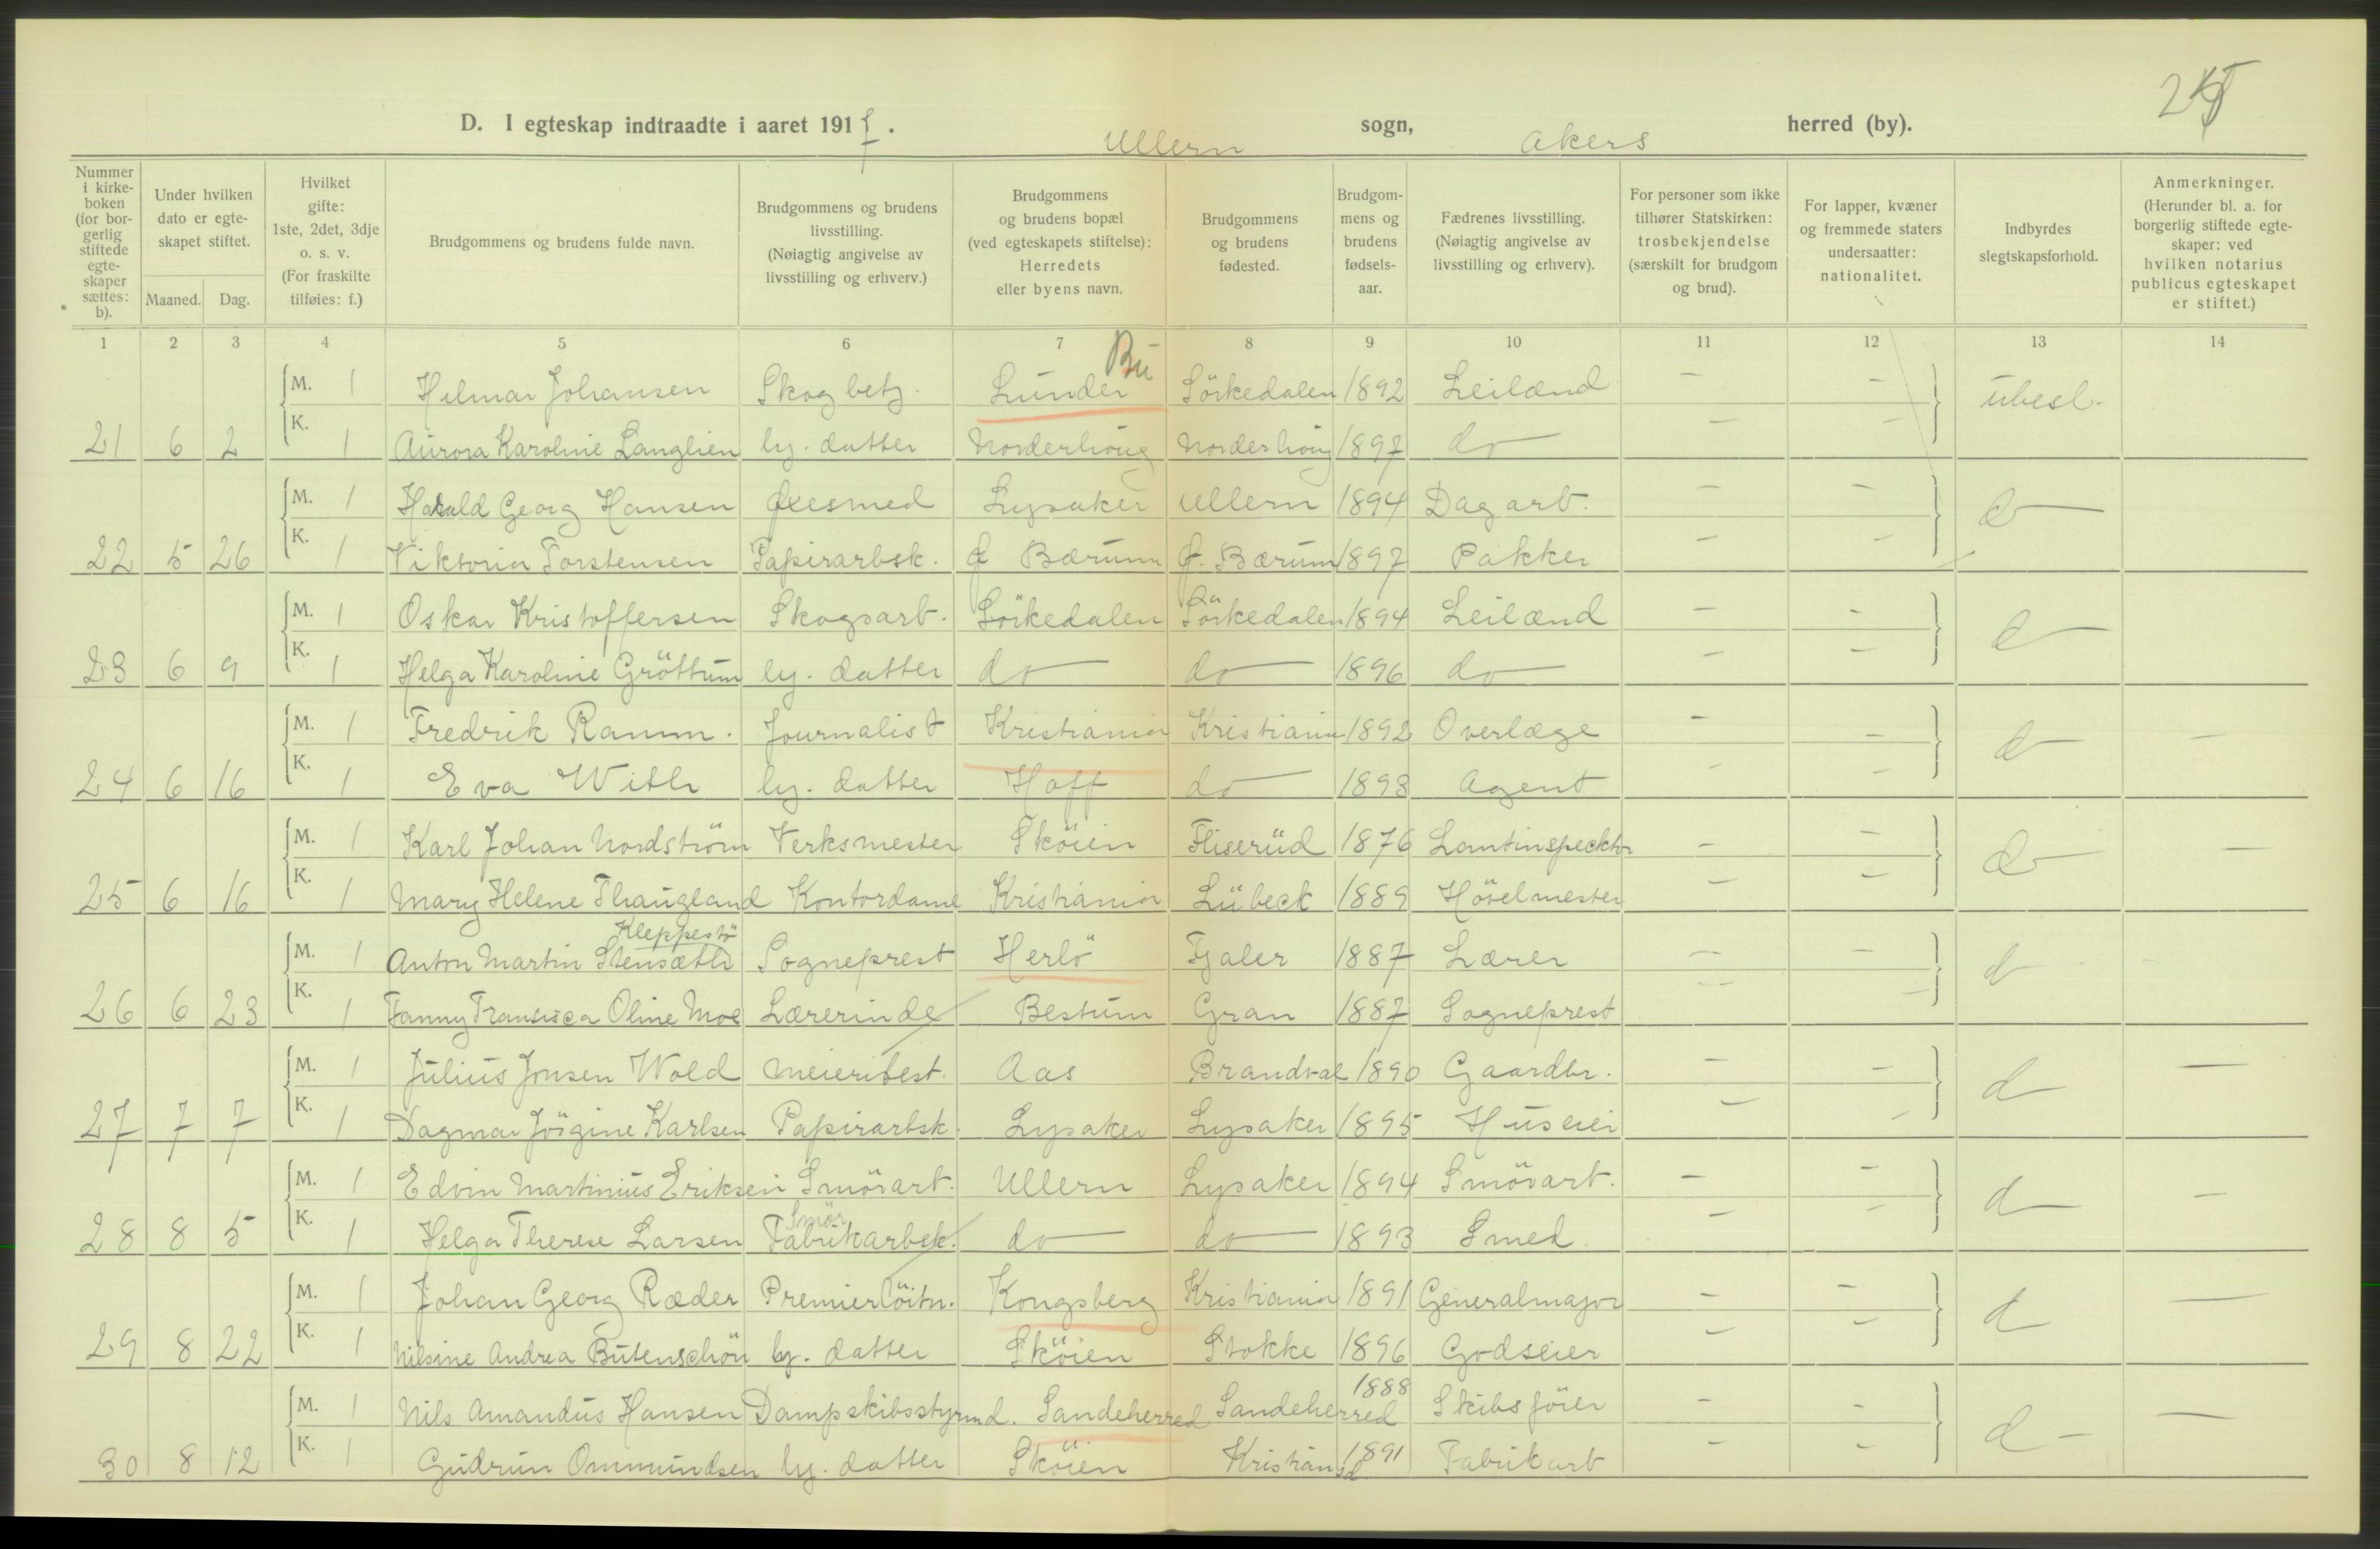 D. I egteskap indtraadte i aaret 1917. Ullern sogn, Akers herred (by).
Nummer i kirkeboken (for borgerlig stiftede egteskaper sættes: b).
Under hvilken dato er egteskapet stiftet.
Maaned. Dag.
Hvilket gifte: 1ste, 2det, 3dje o. s. v. (For fraskilte tilføies: f.)
Brudgommens og brudens fulde navn.
Brudgommens og brudens livsstilling. (Nøiagtig angivelse av livsstilling og erhverv.)
Brudgommens og brudens bopæl (ved egteskapets stiftelse): Herredets eller byens navn.
Brudgommens og brudens fødested.
Brudgommens og brudens fødselsaar.
Fædrenes livsstilling. (Nøiagtig angivelse av livsstilling og erhverv).
For personer som ikke tilhører Statskirken: trosbekjendelse (særskilt for brudgom og brud).
For lapper, kvæner og fremmede staters undersaatter: nationalitet.
Indbyrdes slegtskapsforhold.
Anmerkninger. (Herunder bl. a. for borgerlig stiftede egteskaper: ved hvilken notarius publicus egteskapet er stiftet.)
1 2 3 4 5 6 7 8 9 10 11 12 13 14
M. 1 Helmar Johansen Skogbetj. Lunder Sörkedalen 1892 Leilænd — — ubesl.
21 6 2 K. 1 Aurora Karoline Langlien hj. datter Norderhoug Norderhoug 1897 do — —
M. 1 Harald Georg Hansen Øxesmed Lysaker Ullern 1894 Dagarb. — — d
22 5 26 K. 1 Viktoria Torstensen Papirarbsk. Ø Bærum Ø. Bærum 1897 Pakker — —
M. 1 Oskar Kristoffersen Skogsarb. Sörkedalen Sörkedalen 1894 Leilænd — — d
23 6 9 K. 1 Helga Karoline Gröttum hj. datter do do 1896 do — —
M. 1 Fredrik Ramm. Journalist Kristiania Kristiania 1892 Overlæge — — d —
24 6 16 K. 1 Eva With hj. datter Hoff do 1893 Agent — —
M. 1 Karl Johan Nordström Verksmester Sköien Fliserud 1876 Lantinspecktor — — d —
25 6 16 K. 1 Mary Helene Thaugland Kontordame Kristiania Lübeck 1889 Hövelmester — —
Kleppestö
M. 1 Anton Martin Stensæth Sogneprest Herlö Fjaler 1887 Lærer — — d
26 6 23 K. 1 Fanny Fransisca Oline Moe Lærerinde Bestum Gran 1887 Sogneprest — —
M. 1 Julius Jonsen Wold Meieribest. Aas Brandval 1890 Gaardbr. — — d —
27 7 7 K. 1 Dagmar Jörgine Karlsen Papirarbsk. Lysaker Lysaker 1895 Huseier — —
M. 1 Edvin Martinius Eriksen Smörarb. Ullern Lysaker 1894 Smörarb. — — d —
Smör
28 8 5 K. 1 Helga Therese Larsen Fabrikarbsk. do do 1893 Smed — —
M. 1 Johan Georg Ræder Premierlöitn. Kongsberg Kristiania 1891 Generalmajor — — d —
29 8 22 K. 1 Nilsine Andrea Butenschön hj. datter Sköien Stokke 1896 Godseier — —
M. 1 Nils Amandus Hansen Dampskibsstyrmd. Sandeherred Sandeherred 1888 Skibsförer — — d —
30 8 12 K. 1 Gudrun Ommundsen hj. datter Sköien Kristiansd 1891 Fabrikarb — —